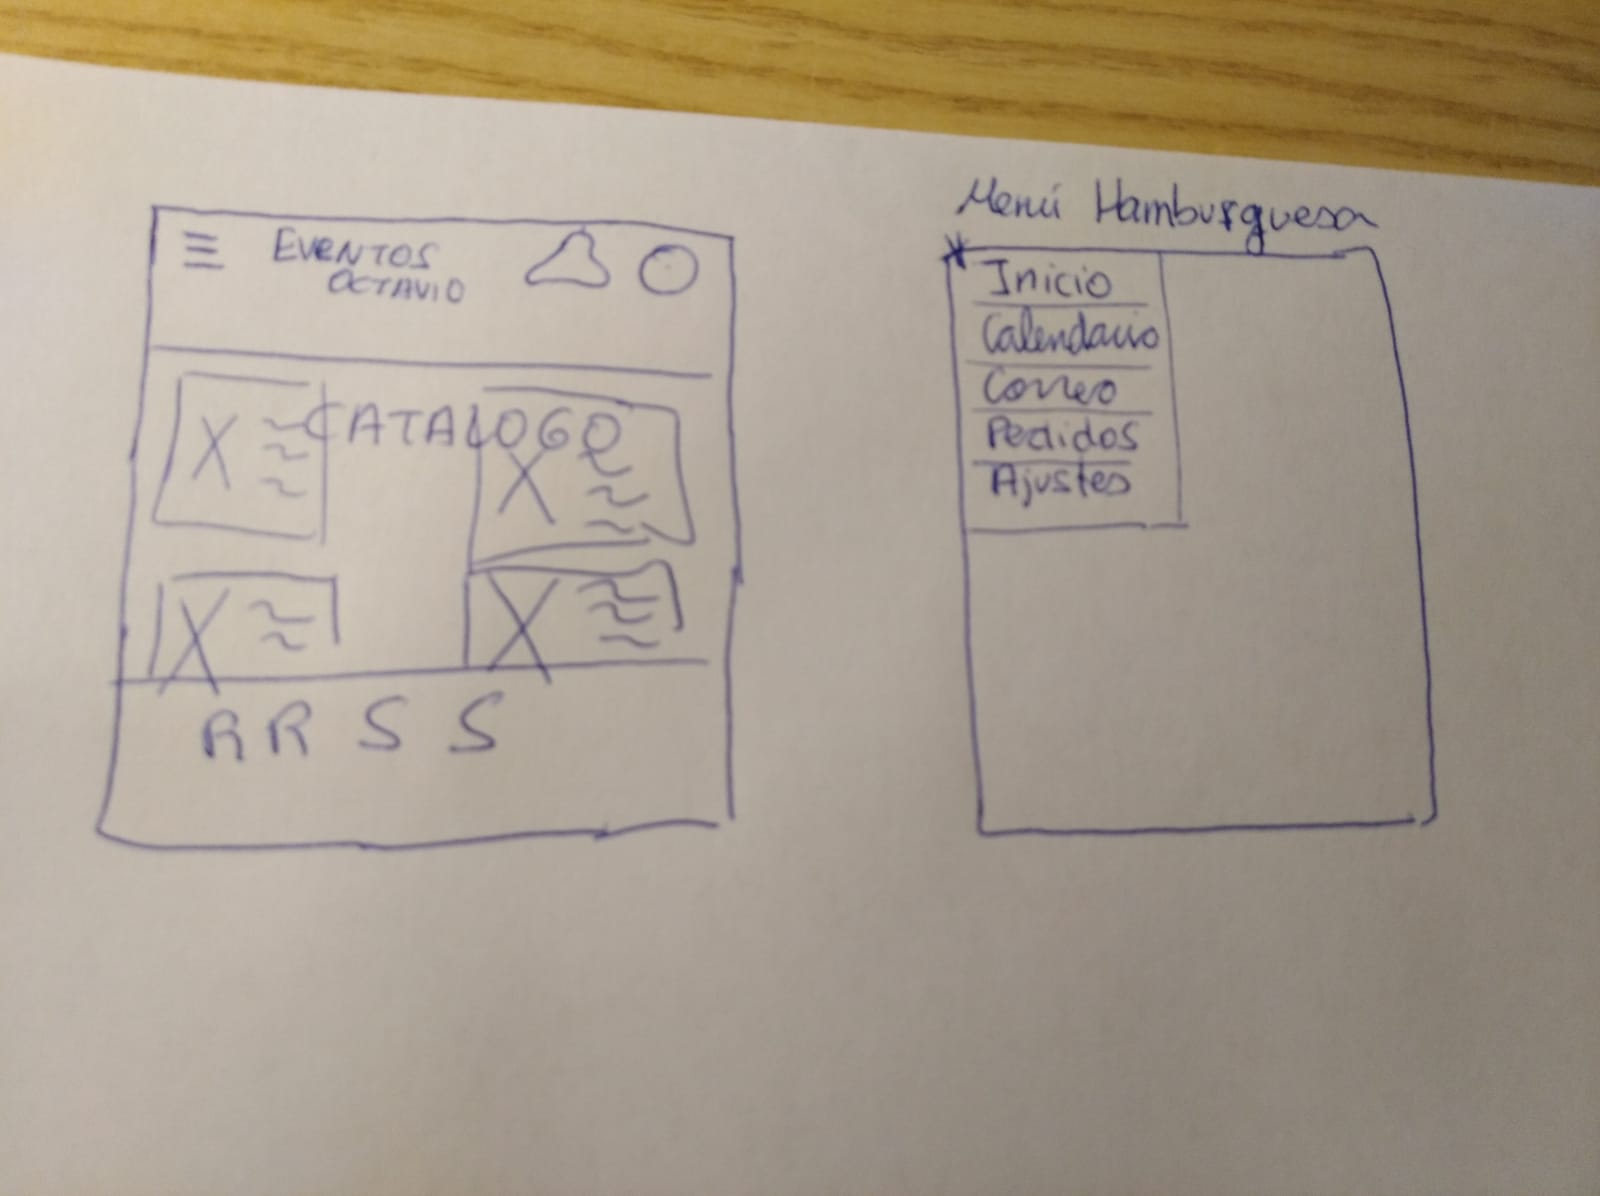 EVENTOS
OCTAVIO
CATALOGO
RRSS
Menú Hamburguesa
Inicio
Calendario
Correo
Pedidos
Ajustes